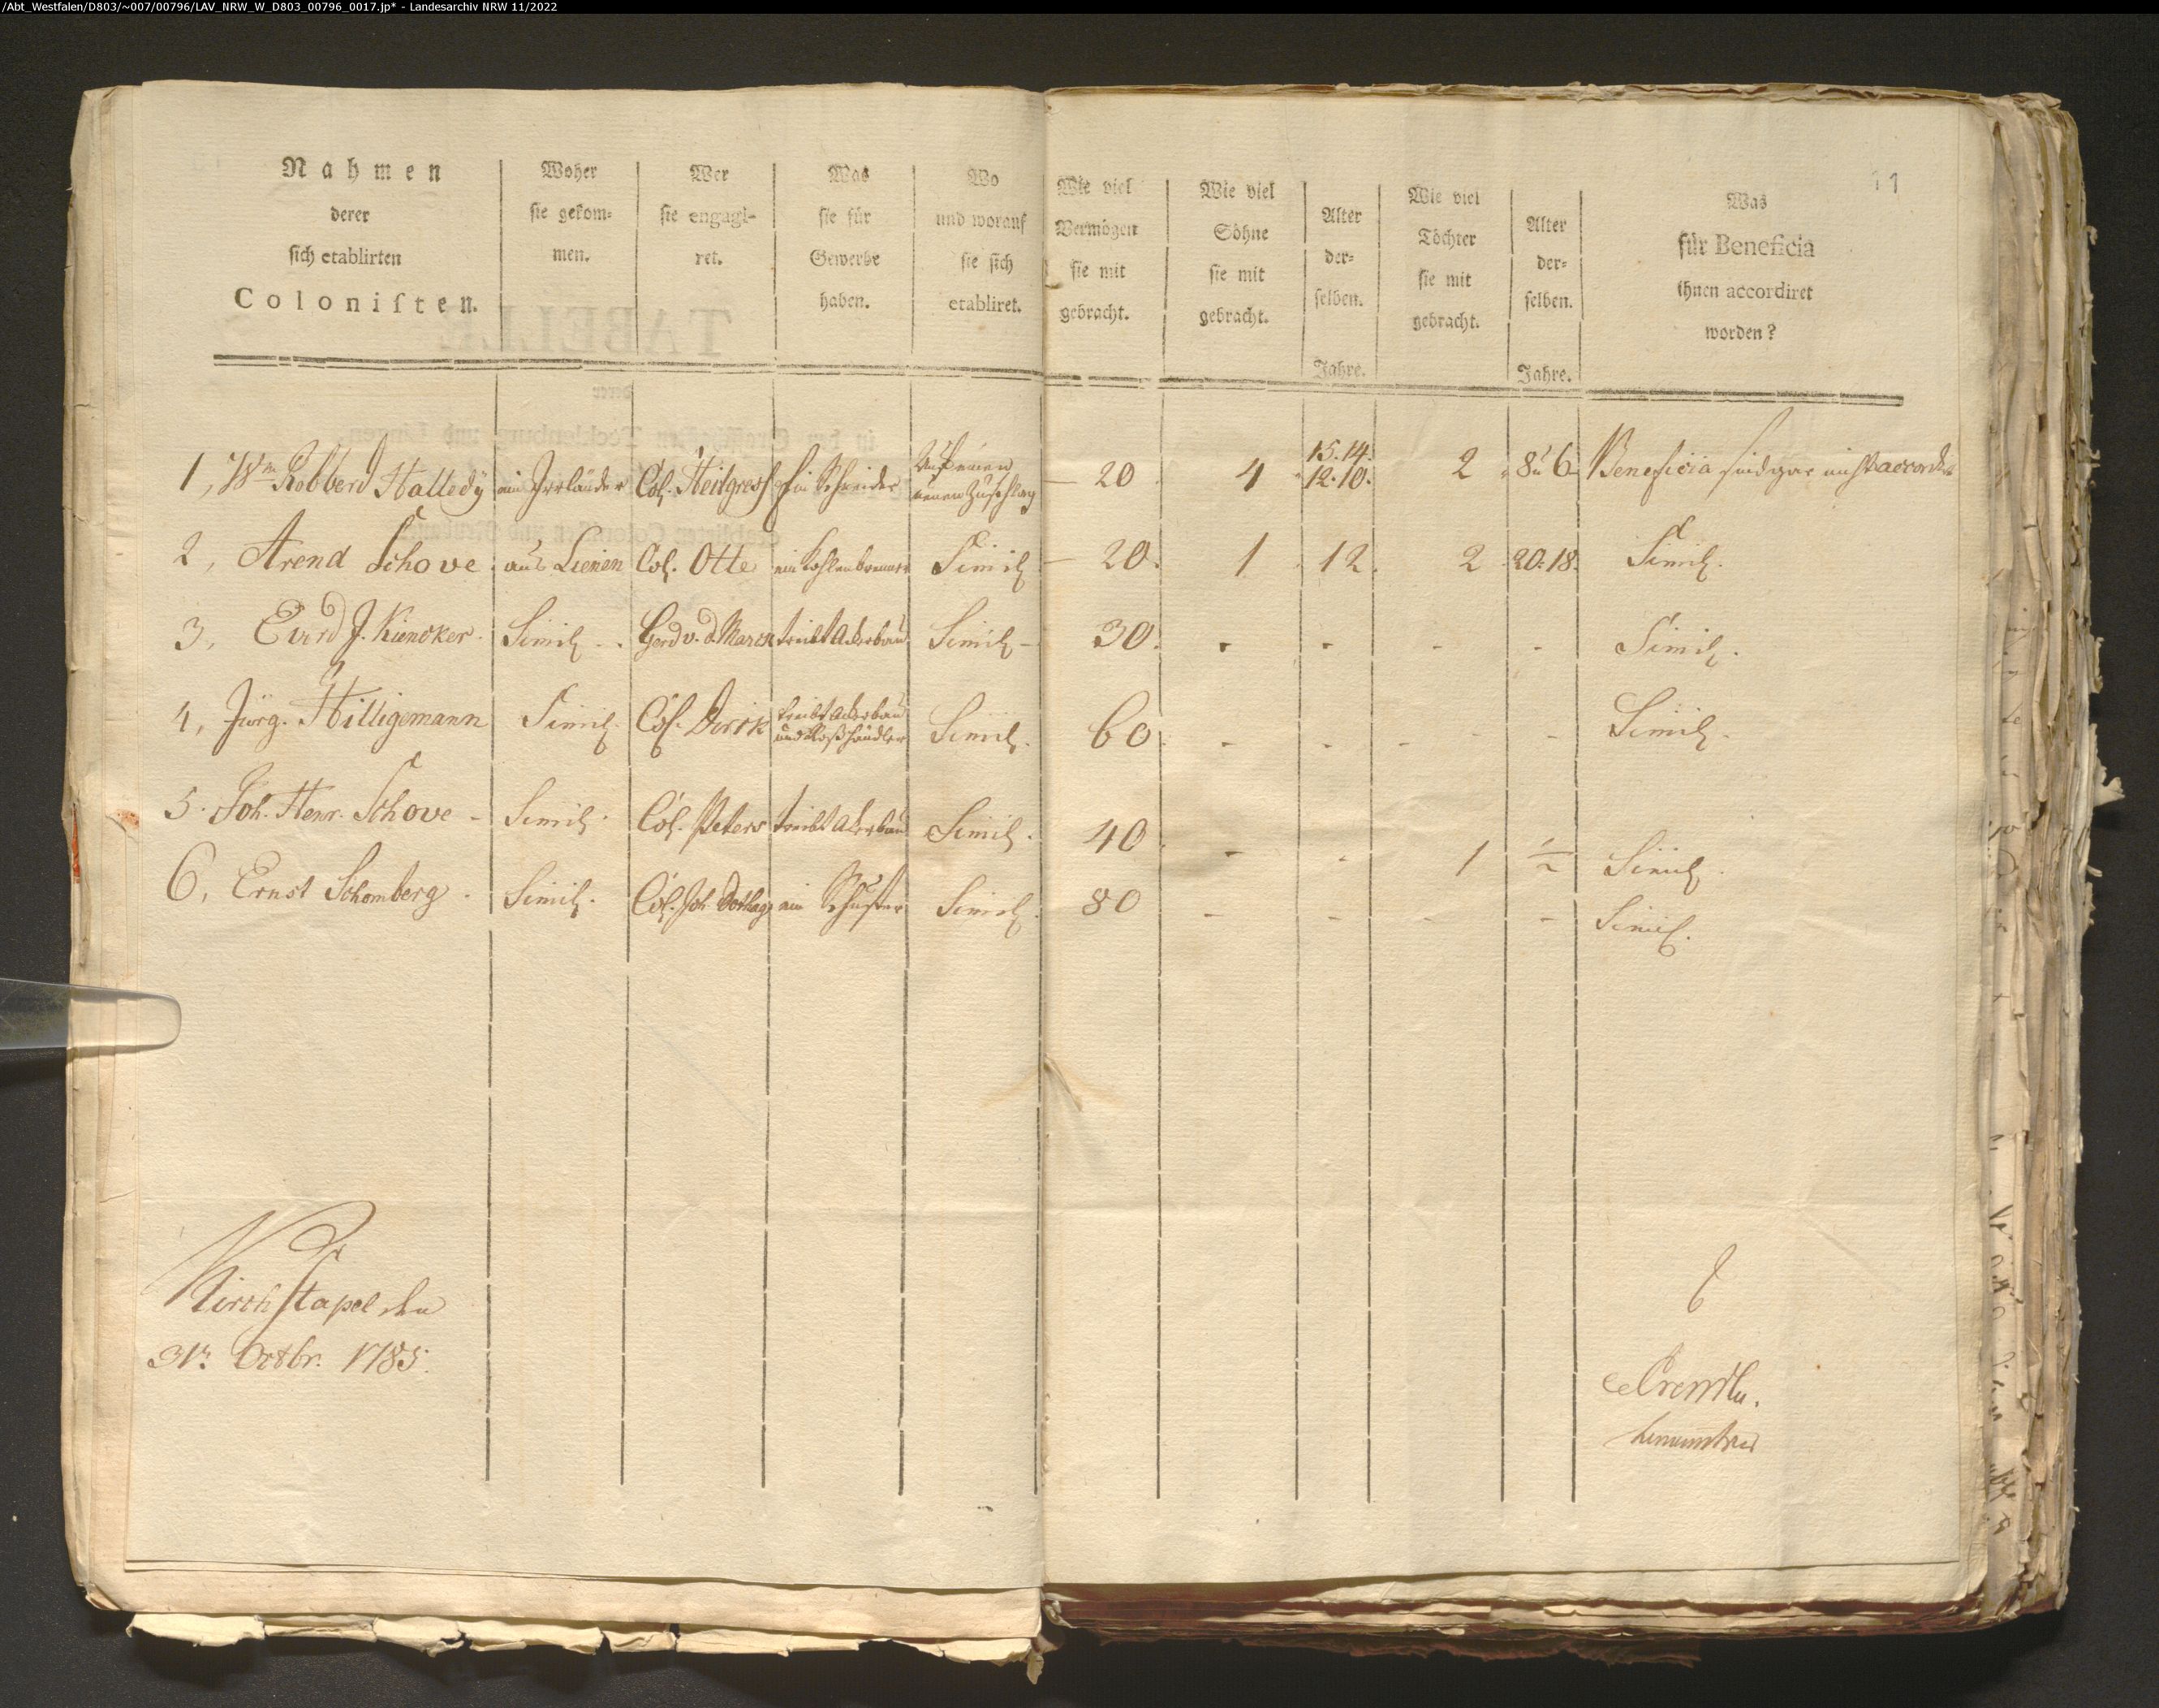 /Abt_Westfalen/D803/~007/00796/LAV_NRW_W_D803_00796_0017.jp* - Landesarchiv NRW 11/2022
11
Nahmen derer sich etablirten Colonisten.
Woher sie gekom= men.
Wer sie engagi= ret.
Was sie für Gewerbe haben.
Wo und worauf sie sich etabliret.
Wie viel Vermögen sie mit gebracht.
Wie viel Söhne sie mit gebracht.
Alter der= selben. Jahre.
Wie viel Töchter sie mit gebracht.
Alter der= selben. Jahre.
Was für Beneficia ihnen accordiret worden?
1, Wm Robberd Halledÿ ein Irrländer Col. ein Schneider Auf einen neuen Zuschlag 20 4 15. 14. 12. 10. 2 8 u 6 Beneficia sind gar nicht
2, Arend Schove aus Lienen Col. Otte ein Kohlenbrenner Simil 20. 1 12. 2 20. 18. Simil.
3, Everd J. Kiencker Simil Gerd v. d. Marck treibt Ackerbau Simil 30. - - - - Simil.
4, Jürg. Hilligemann Simil. Col. Dirck treibt Ackerbau und Simil. 60. - - - - Simil.
5. Joh. Henr. Schove Simil. Col. Peters treibt Ackerbau Simil. 40. - - 1 1/2 Simil.
6, Ernst Schomberg Simil. Col. Joh. ein Schuster Simil. 80 - - - - Simil.
Kirchstapel den
31n. Octbr. 1785.